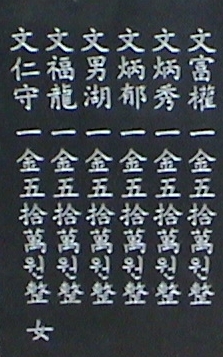 文富權一金五拾萬원整
文炳秀一金五拾萬원整
文炳郁一金五拾萬원整
文男湖一金五拾萬원整
文福龍一金五拾萬원整
文仁守一金五拾萬원整
女